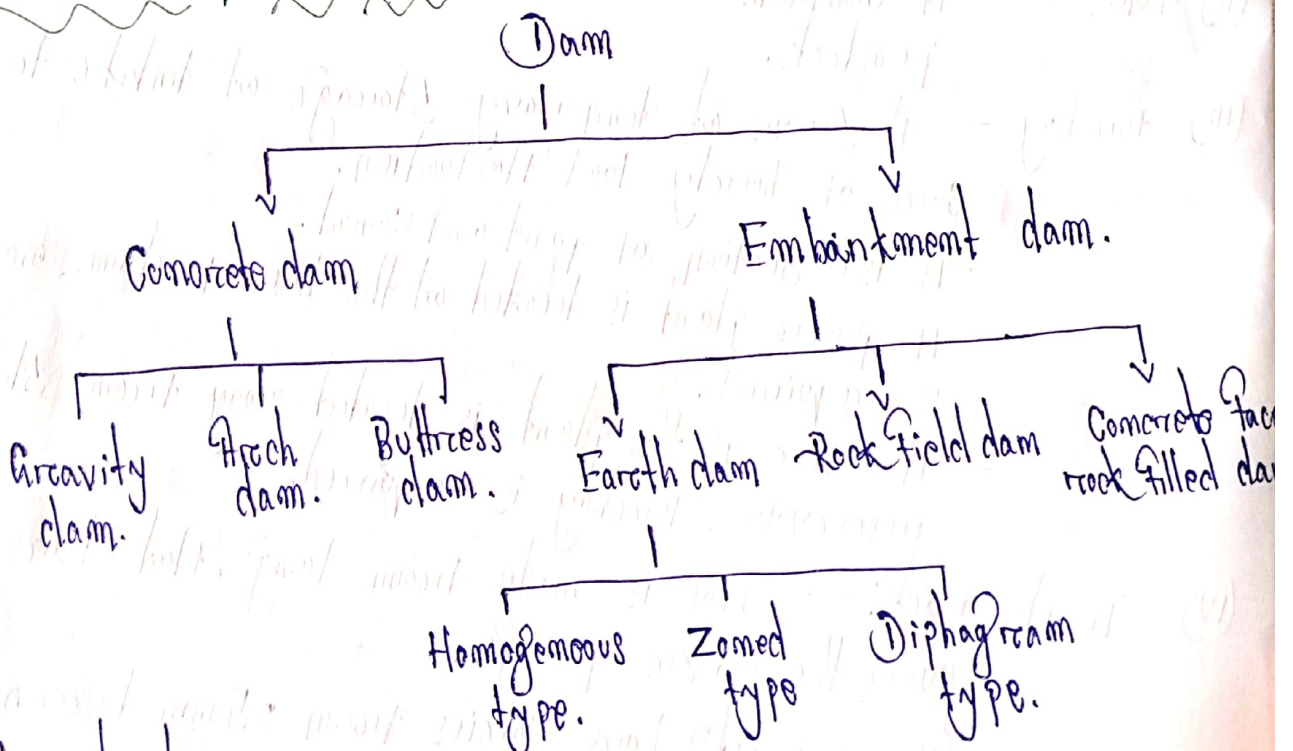 Dam
Concrete dam
Embankment dam.
Gravity
dam.
Arch
dam.
Buttress
dam.
Earth dam
Rock field dam
Concrete fac
rock filled da
Homogeneous
type.
Zoned
type
Diphagram
type.